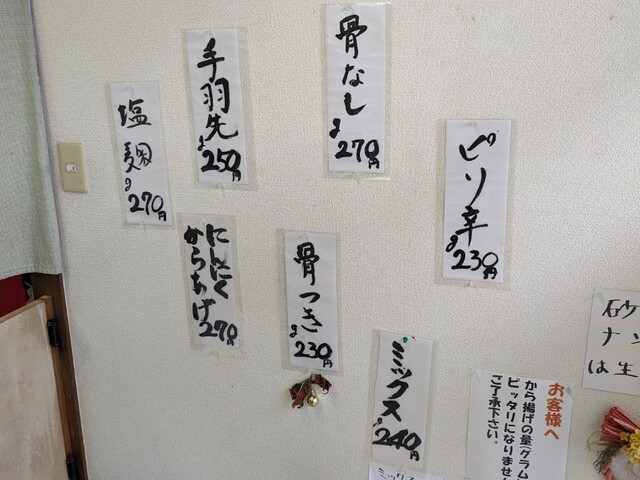 塩麹
g270円
手羽先
g250円
骨なし
g270円
ピリ辛
g230円
にんにく
からあげ
270円
骨つき
g230円
ミックス
g240円
お客様へ
から揚げの量(グラム
ピッタリになりません
ご了承下さい。
は生